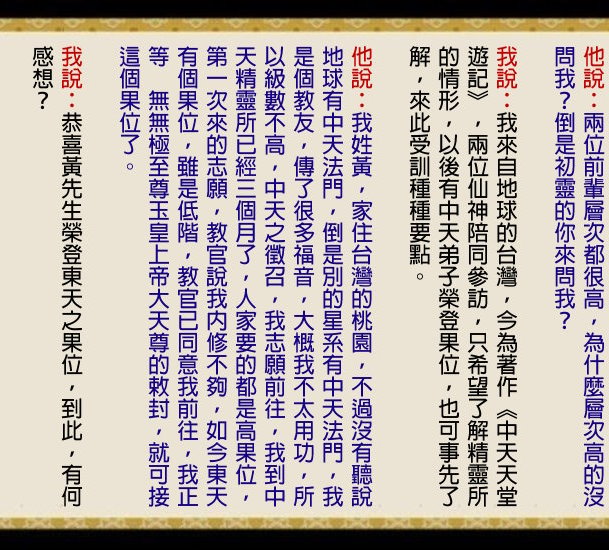 他說：兩位前輩層次都很高，為什麼層次高的沒
問我？倒是初靈的你來問我？
我說：我來自地球的台灣，今為著作《中天天堂
遊記》，兩位仙神陪同參訪，只希望了解精靈所
的情形，以後有中天弟子榮登果位，也可事先了
解，來此受訓種種要點。
他說：我姓黃，家住台灣的桃園，不過沒有聽說
地球有中天法門，倒是別的星系有中天法門，我
是個教友，傳了很多福音，大概我不太用功，所
以級數不高，中天之徵召，我志願前往，我到中
天精靈所已經三個月了，人家要的都是高果位，
第一次來的志願，教官說我內修不夠，如今東天
有個果位，雖是低階，教官已同意我前往，我正
等　無無極至尊玉皇上帝大天尊的敕封，就可接
這個果位了。
我說：恭喜黃先生榮登東天之果位，到此，有何
感想？